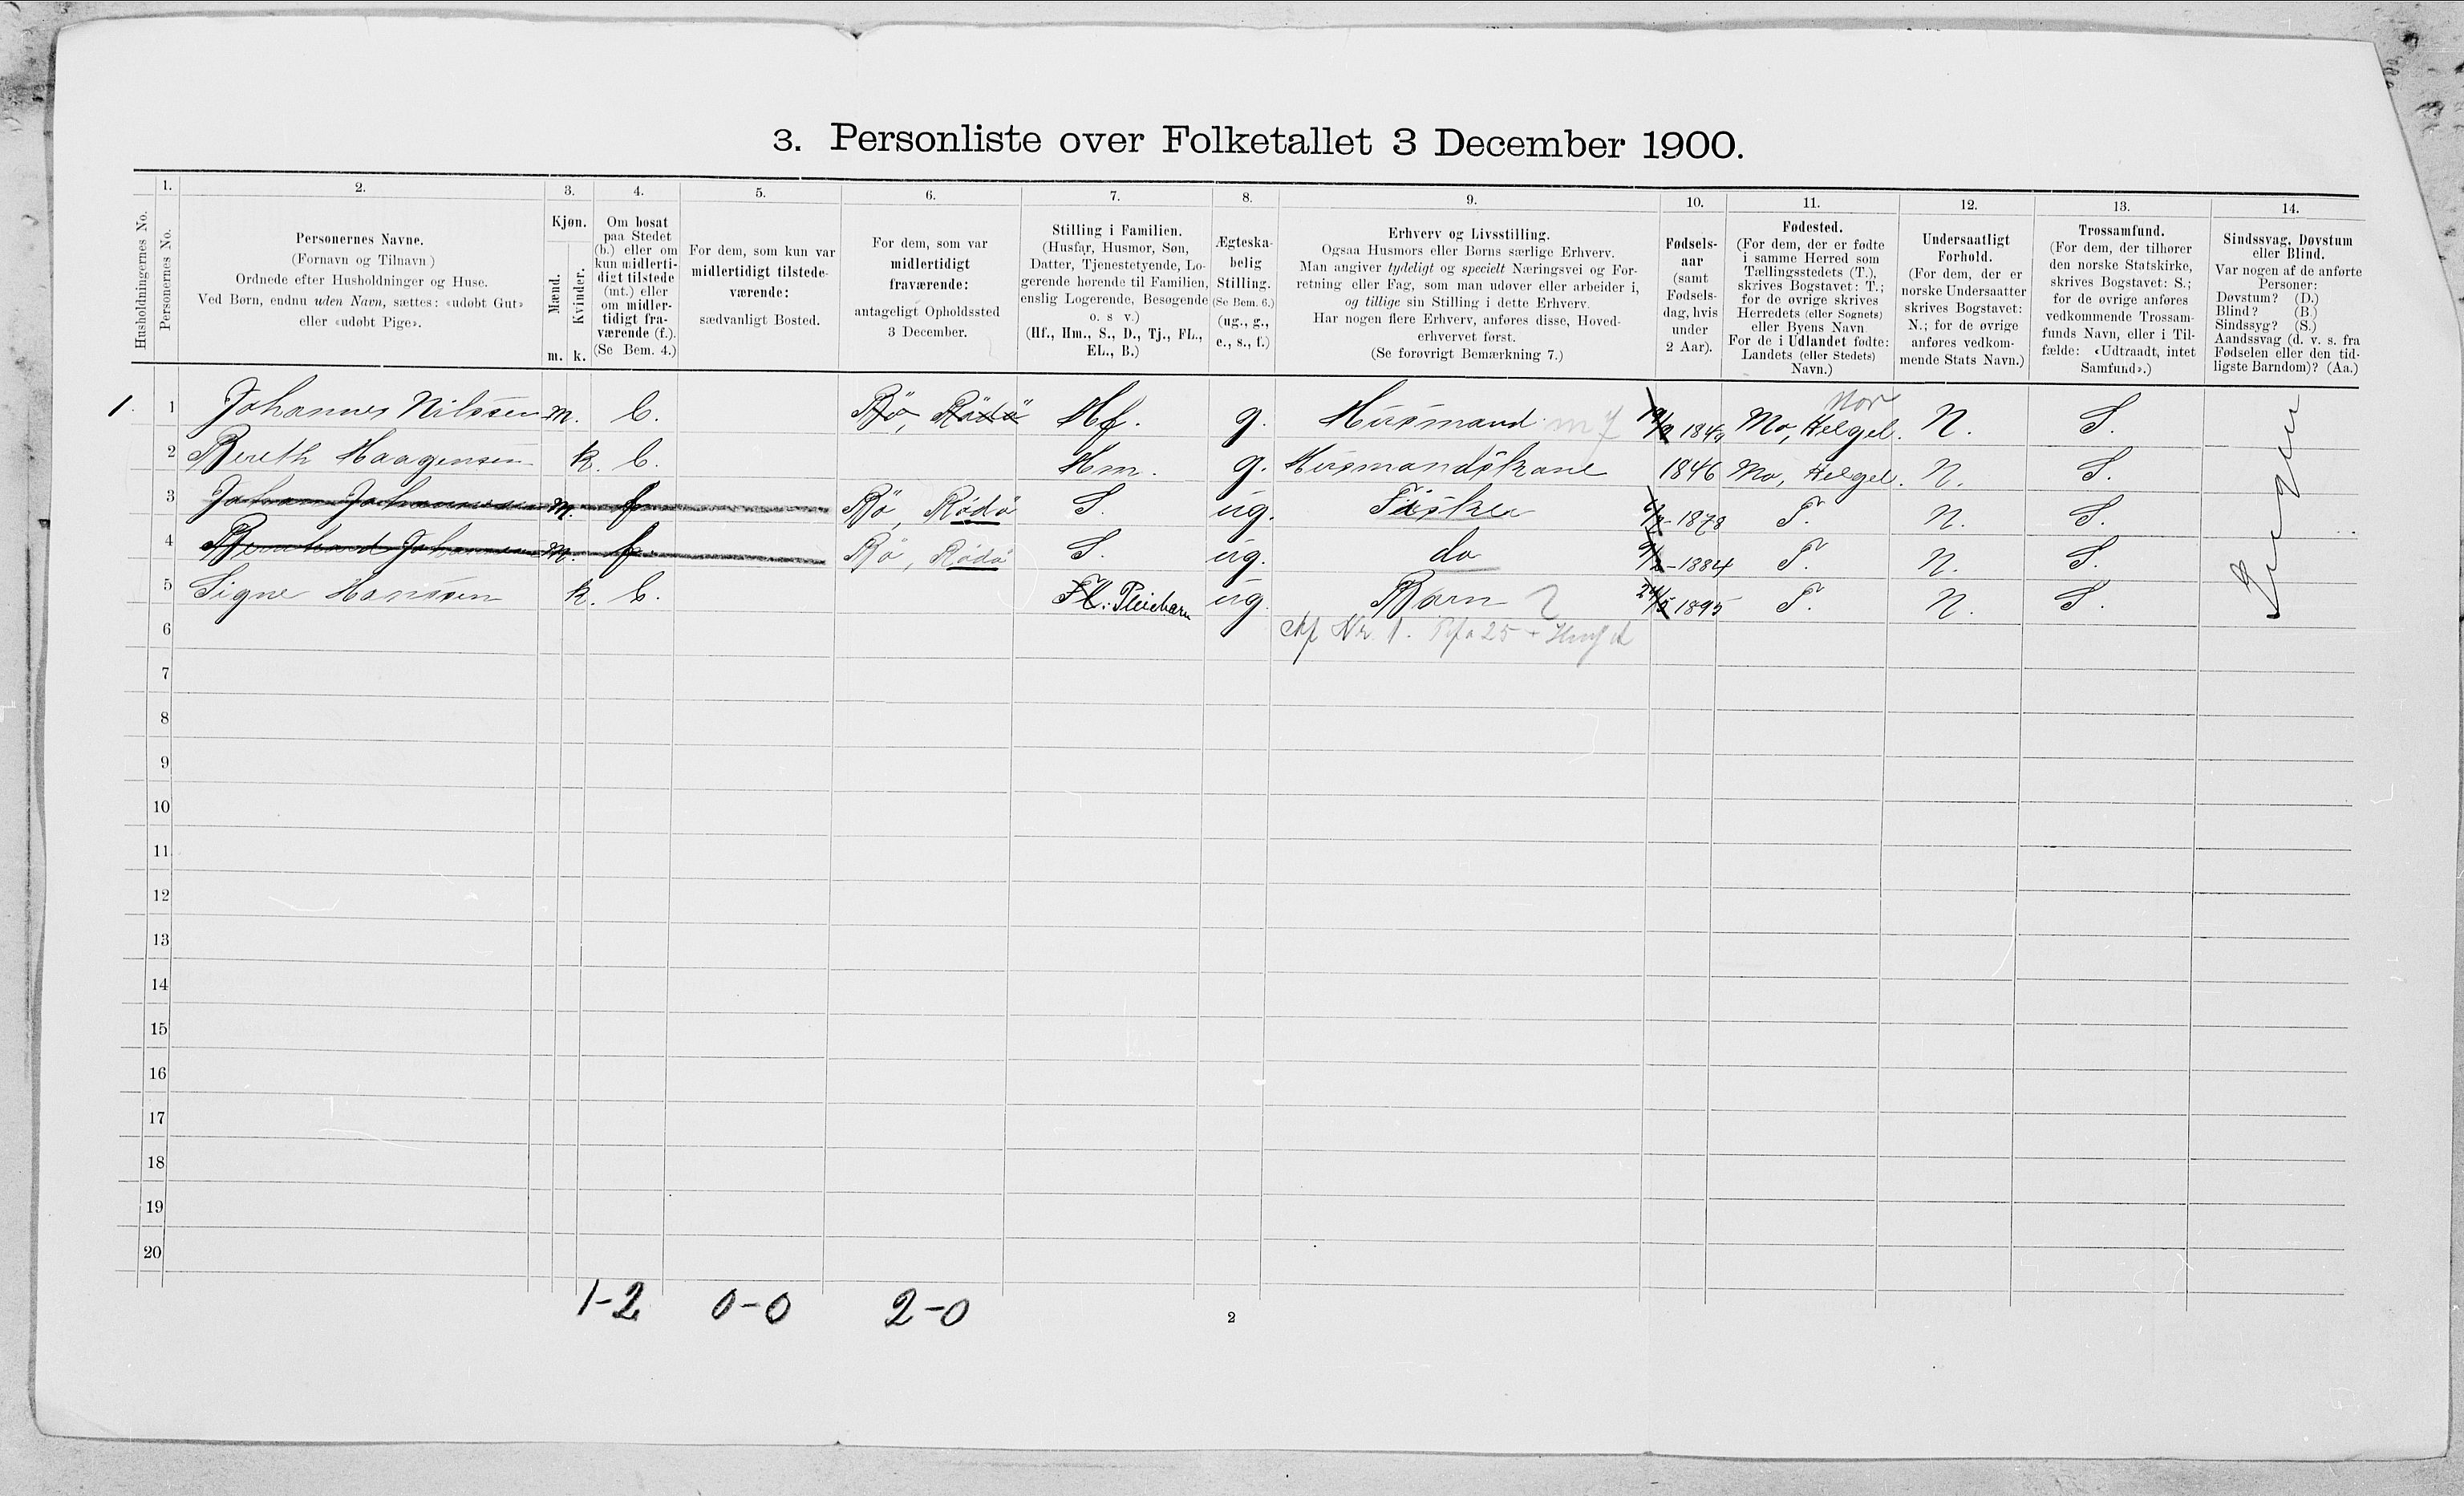 3. Personliste over Folketallet 3 December 1900.
1. 2. 3. 4. 5. 6. 7. 8. 9. 10. 11. 12. 13. 14.
Husholdningernes No.
Personernes No.
Personernes Navne.
(Fornavn og Tilnavn)
Ordnede efter Husholdninger og Huse.
Ved Børn, endnu uden Navn, sættes: «udøbt Gut»
eller «udøbt Pige».
Kjøn.
Mænd.
Kvinder.
m. k.
Om bosat
paa Stedet
(b.) eller om
kun midlerti-
digt tilstede
(mt.) eller
om midler-
tidigt fra-
værende (f.).
(Se Bem. 4.)
For dem, som kun var
midlertidigt tilstede-
værende:
sædvanligt Bosted.
For dem, som var
midlertidigt
fraværende:
antageligt Opholdssted
3 December.
Stilling i Familien.
(Husfar, Husmor, Søn,
Datter, Tjenestetyende, Lo-
gerende hørende til Familien,
enslig Logerende, Besøgende
o. s. v.)
(Hf., Hm., S., D., Tj., FL.,
EL., B.)
Ægteska-
belig
Stilling.
(Se Bem. 6.)
(ug., g.,
e., s., f.)
Erhverv og Livsstilling.
Ogsaa Husmors eller Børns særlige Erhverv.
Man angiver tydeligt og specielt Næringsvei og For-
retning eller Fag, som man udøver eller arbeider i,
og tillige sin Stilling i dette Erhverv.
Har nogen flere Erhverv, anføres disse, Hoved-
erhvervet først.
(Se forøvrigt Bemærkning 7.)
Fødsels-
aar
(samt
Fødsels-
dag, hvis
under
2 Aar).
Fødested.
(For dem, der er fødte
i samme Herred som
Tællingsstedets (T.),
skrives Bogstavet: T.;
for de øvrige skrives
Herredets (eller Sognets)
eller Byens Navn
For de i Udlandet fødte:
Landets (eller Stedets)
Navn.)
Undersaatligt
Forhold.
(For dem, der er
norske Undersaatter
skrives Bogstavet:
N.; for de øvrige
anføres vedkom-
mende Stats Navn.)
Trossamfund.
(For dem, der tilhører
den norske Statskirke,
skrives Bogstavet: S.;
for de øvrige anføres
vedkommende Trossam-
funds Navn, eller i Til-
fælde: «Udtraadt, intet
Samfund».)
Sindssvag, Døvstum
eller Blind.
Var nogen af de anførte
Personer:
Døvstum? (D.)
Blind? (B.)
Sindssyg? (S.)
Aandssvag (d. v. s. fra
Fødselen eller den tid-
ligste Barndom)? (Aa.)
1. 1 Johannes Nilssen m. b. Rö, Rödö Hf. g. Husmand 1849 Mo, Helgel. N. S.
Nor
2 Bereth Haagensen k. b. Hm. g. Husmandskone 1846 Mo, Helgel. N. S.
3 Johan Johannessen m. f Rö, Rödö S. ug. Fisker 1878 T. N. S.
4 Bernhard Johannsen m. f. Rö, Rödö S. ug. do 1884 T. N. S.
5 Signe Hanssen k. b. Fl.: Pleiebarn ug. Barn 1895 T. N. S.
Ingen
6 Af Nr. 1.
7
8
9
10
11
12
13
14
15
16
17
18
19
20
1-2 0-0 2-0
2